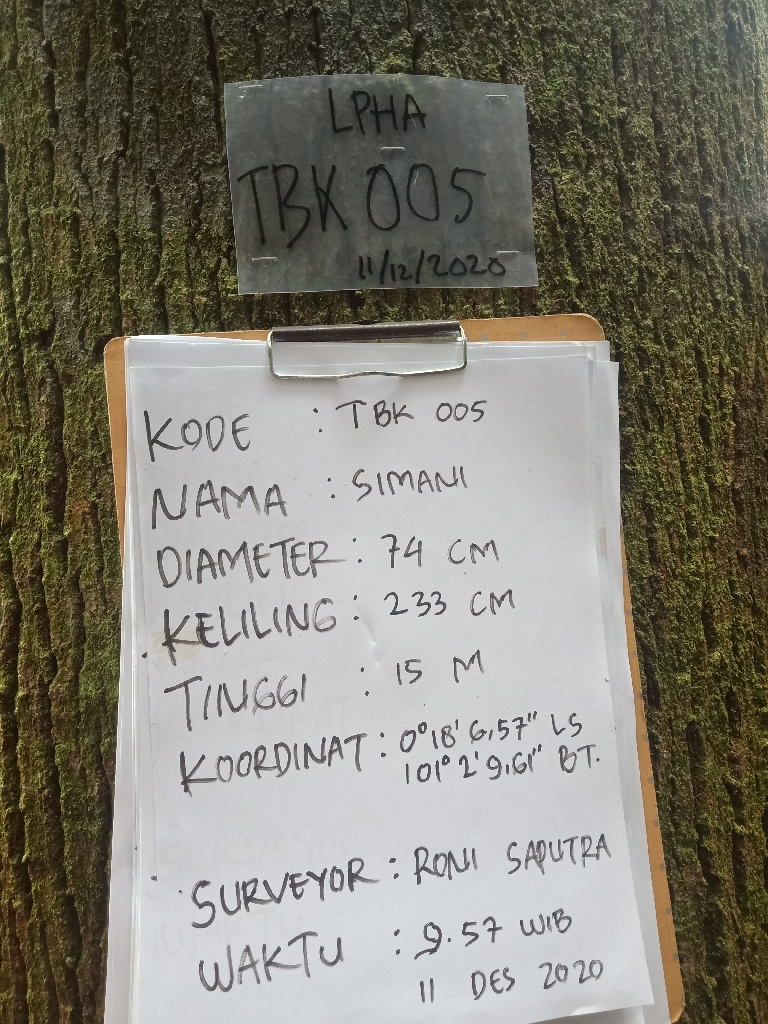 LPHA
TBK 005
11/12/2020
KODE : TBK 005
NAMA : SIMANI
DIAMETER : 74 CM
KELILING : 233 CM
TINGGI : 15 M
KOORDINAT : 0°18'6,57" LS
101° 2' 9,61" BT.
SURVEYOR : RONI SAPUTRA
WAKTU : 9.57 WIB
11 DES 2020